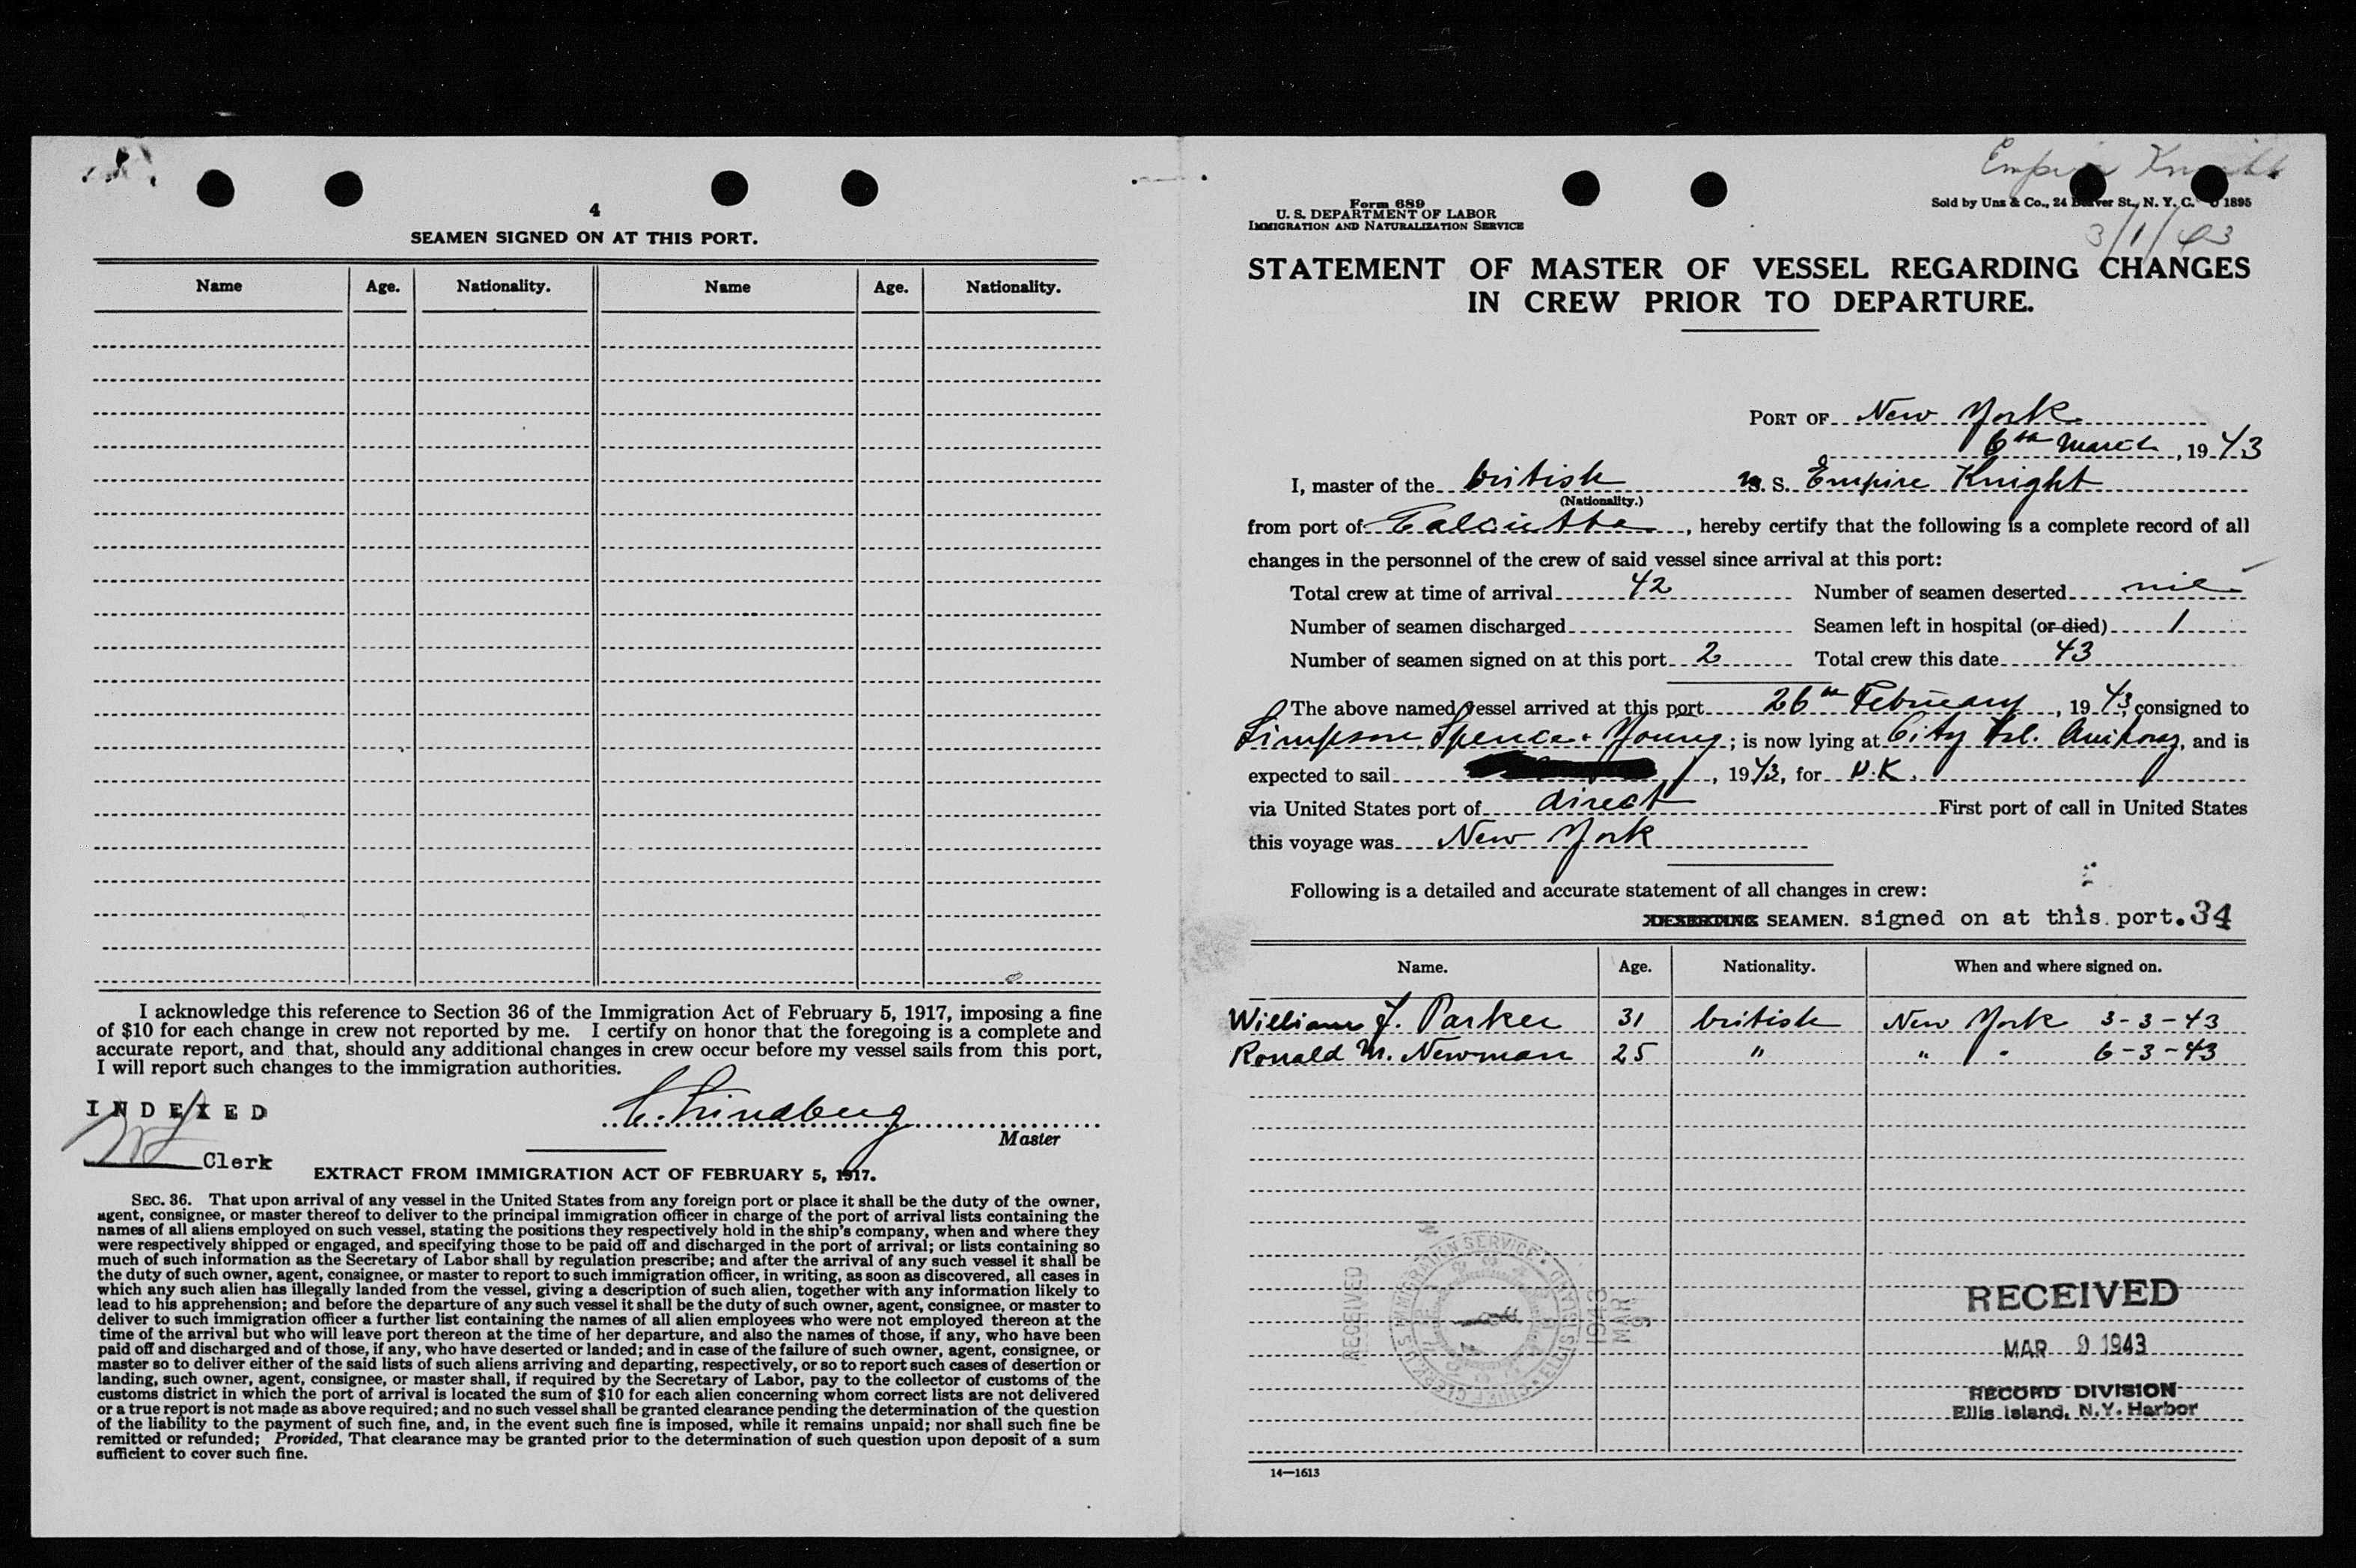 4
SEAMEN SIGNED ON AT THIS PORT.
Name Age. Nationality. Name Age. Nationality.
I acknowledge this reference to Section 36 of the Immigration Act of February 5, 1917, imposing a fine
of $10 for each change in crew not reported by me. I certify on honor that the foregoing is a complete and
accurate report, and that, should any additional changes in crew occur before my vessel sails from this port,
I will report such changes to the immigration authorities.
INDEXED
C. Lindberg
Master
Clerk
EXTRACT FROM IMMIGRATION ACT OF FEBRUARY 5, 1917.
SEC. 36. That upon arrival of any vessel in the United States from any foreign port or place it shall be the duty of the owner,
agent, consignee, or master thereof to deliver to the principal immigration officer in charge of the port of arrival lists containing the
names of all aliens employed on such vessel, stating the positions they respectively hold in the ship's company, when and where they
were respectively shipped or engaged, and specifying those to be paid off and discharged in the port of arrival; or lists containing so
much of such information as the Secretary of Labor shall by regulation prescribe; and after the arrival of any such vessel it shall be
the duty of such owner, agent, consignee, or master to report to such immigration officer, in writing, as soon as discovered, all cases in
which any such alien has illegally landed from the vessel, giving a description of such alien, together with any information likely to
lead to his apprehension; and before the departure of any such vessel it shall be the duty of such owner, agent, consignee, or master to
deliver to such immigration officer a further list containing the names of all alien employees who were not employed thereon at the
time of the arrival but who will leave port thereon at the time of her departure, and also the names of those, if any, who have been
paid off and discharged and of those, if any, who have deserted or landed; and in case of the failure of such owner, agent, consignee, or
master so to deliver either of the said lists of such aliens arriving and departing, respectively, or so to report such cases of desertion or
landing, such owner, agent, consignee, or master shall, if required by the Secretary of Labor, pay to the collector of customs of the
customs district in which the port of arrival is located the sum of $10 for each alien concerning whom correct lists are not delivered
or a true report is not made as above required; and no such vessel shall be granted clearance pending the determination of the question
of the liability to the payment of such fine, and, in the event such fine is imposed, while it remains unpaid; nor shall such fine be
remitted or refunded; Provided, That clearance may be granted prior to the determination of such question upon deposit of a sum
sufficient to cover such fine.
Empire Knight
Form 689
U. S. DEPARTMENT OF LABOR
IMMIGRATION AND NATURALIZATION SERVICE
Sold by Uns & Co., 24 Beaver St., N. Y. C. 1895
3/1/43
STATEMENT OF MASTER OF VESSEL REGARDING CHANGES
IN CREW PRIOR TO DEPARTURE.
PORT OF New York
6th March, 1943
I, master of the british M. S. Empire Knight
(Nationality.)
from port of Calcutta, hereby certify that the following is a complete record of all
changes in the personnel of the crew of said vessel since arrival at this port:
Total crew at time of arrival 42 Number of seamen deserted nil
Number of seamen discharged Seamen left in hospital (or died) 1
Number of seamen signed on at this port 2 Total crew this date 43
The above named vessel arrived at this port 26th February, 1943, consigned to
Simpson, Spence & Young; is now lying at City Isl. , and is
expected to sail , 1943, for U.K.
via United States port of direct First port of call in United States
this voyage was New York
Following is a detailed and accurate statement of all changes in crew:
DESERTING SEAMEN. signed on at this port. 34
Name. Age. Nationality. When and where signed on.
William J. Parker 31 british New York 3-3-43
Ronald M. Newman 25 " " " 6-3-43
RECEIVED
1943 MAR 9
RECEIVED
MAR 9 1943
RECORD DIVISION
Ellis Island, N.Y. Harbor
14—1613